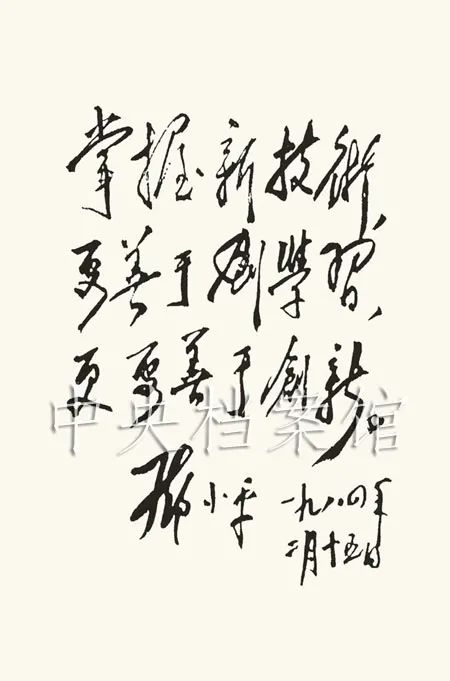 掌握新技術、
要善于學習、
更要善于創新。
中央档案馆
鄧小平 一九八四年
二月十五日